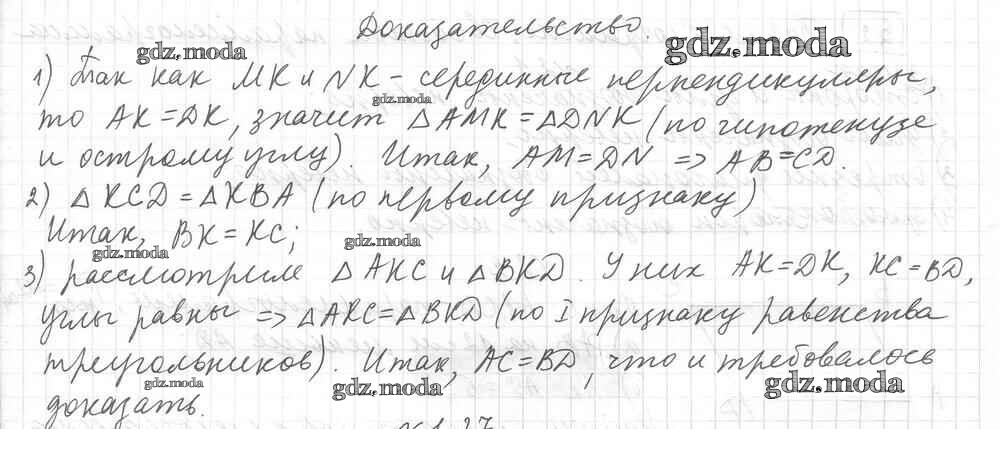 Доказательство.
gdz.moda
gdz.moda
1) Так как MK и NK – серединные перпендикуляры,
gdz.moda
то AK = DK, значит △AMK = △DNK (по гипотенузе
и острому углу). Итак, AM = DN => AB = CD.
2) △KCD = △KBA (по первому признаку)
Итак, BK = KC;
gdz.moda
gdz.moda
3) рассмотрим △AKC и △BKD. У них AK = DK, KC = BD,
углы равны => △AKC = △BKD (по I признаку равенства
треугольников). Итак, AC = BD, что и требовалось
gdz.moda
gdz.moda
gdz.moda
доказать.